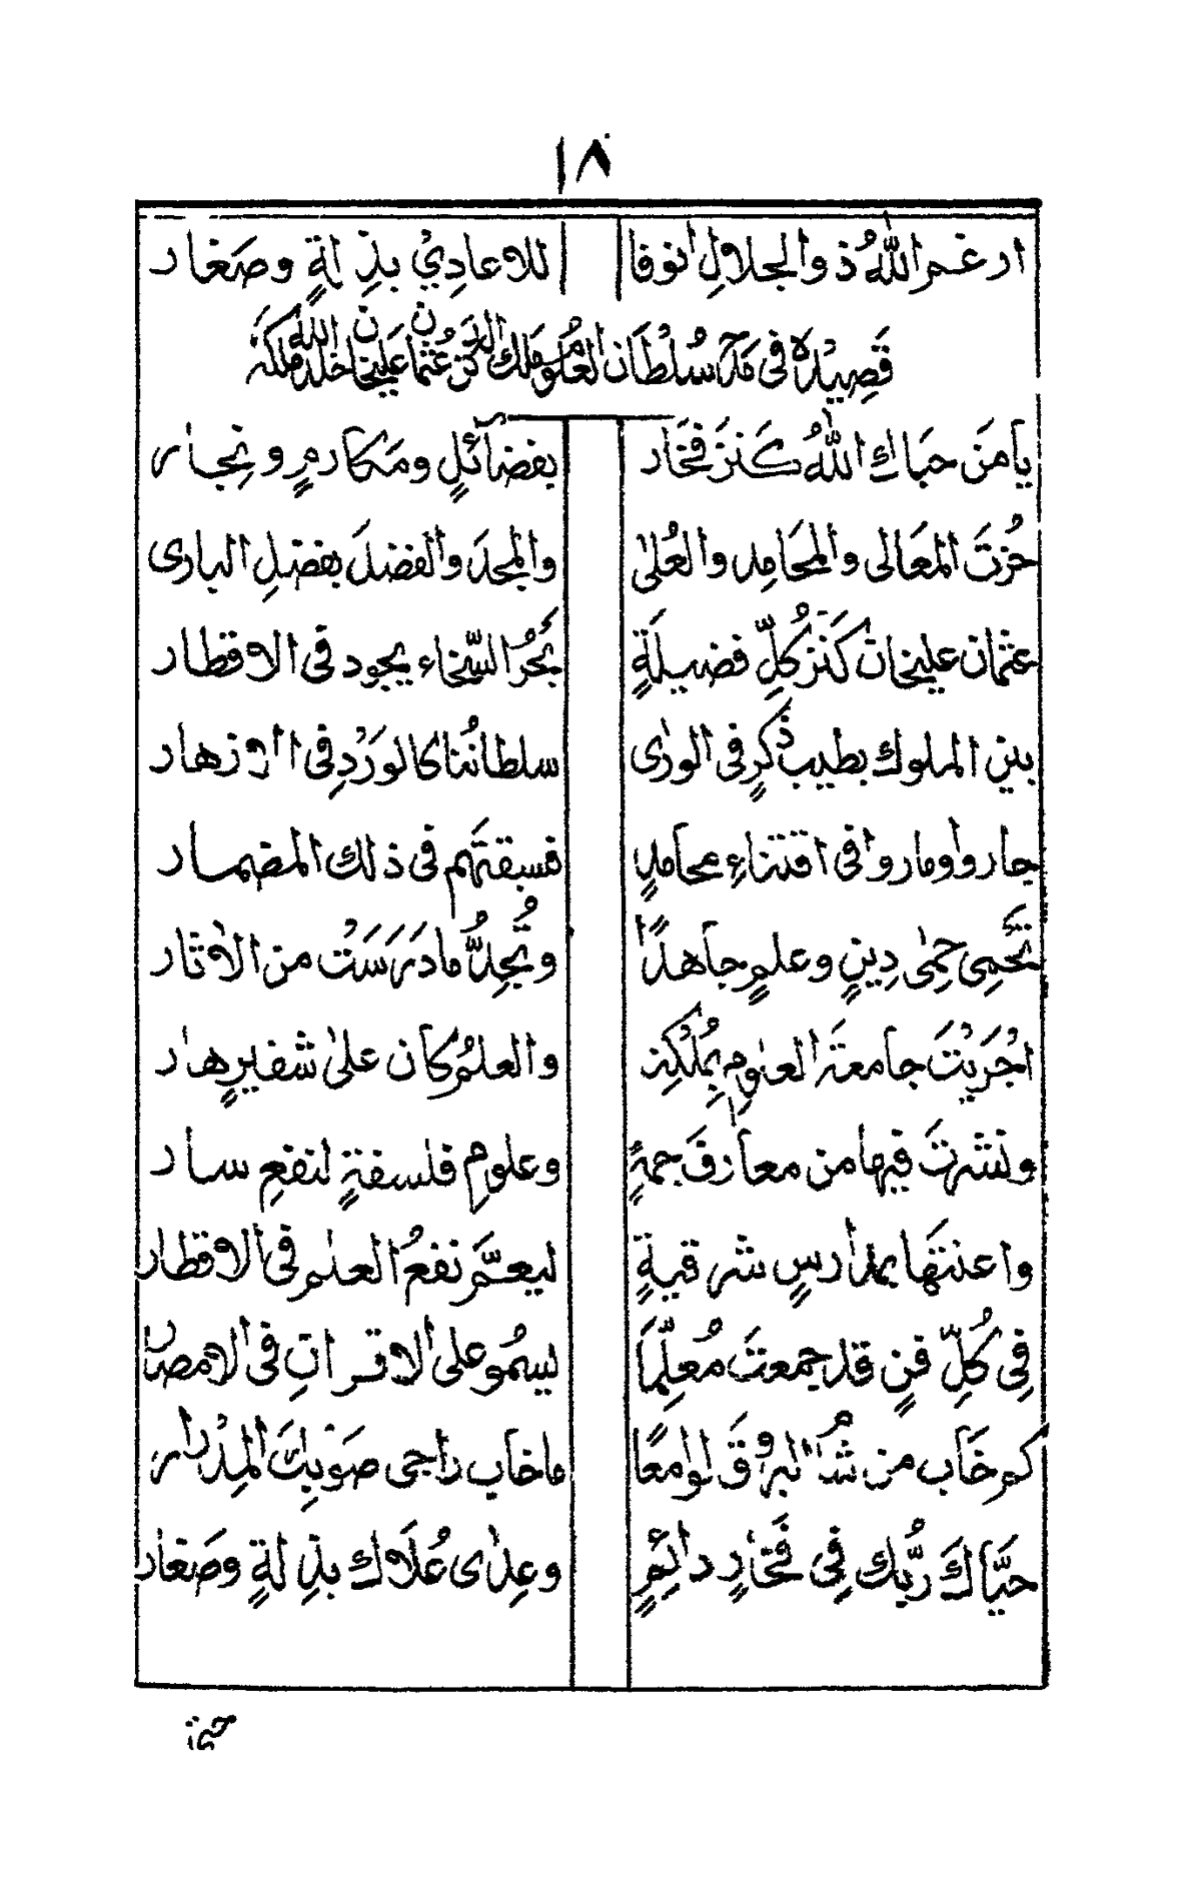 ١٨
ارغم اللهُ ذوالجلالِ انوفا للاعادِيْ بذِلةٍ وصَغار
قَصِيْدَة فى مَدح سُلْطَان العُلوم مَلك الدكن عُثمان عَليخان خلد الله ملكه
يا مَن حَباك اللهُ كَنزَ فَخَار بفضآئلٍ ومَكارمٍ ونِجار
حُزتَ المعَالى والمحَامِد والعُلىٰ والمجدَ والفضلَ بفضلِ البارى
عثمان عليخان كَنزُ كُلِّ فضيلَةٍ بَحْرُ السَّخاء يجود فى الاقطار
بين الملوك بطيب ذكرٍ فى الورٰى سلطانُنا كالوَرْدِ فى الازهار
جاروا وماروا فى اقتناءِ محامدٍ فسبقتَهم فى ذلك المضمار
تَحْمِى حِمٰى دِينٍ وعلمٍ جاهدًا وتُجِدُّ ما دَرَسَتْ من الاٰثار
اجْرَيْتَ جامعةَ العلومِ بِمُلْكِه والعلمُ كان علىٰ شفيرٍ هار
ونشرتَ فيها من معارفَ جمةٍ وعلومِ فلسفةٍ لنفعِ سار
واعنتَها بمدارسٍ شرقيةٍ ليعمَّ نفعُ العلم فى الاقطار
فِى كُلِّ فنٍ قد جمعتَ مُعلِّمًا ليسمُو على الاقرانِ فى الامصار
كم خَاب من شَامَ البروقَ لوامعًا ما خاب راجى صَوْبِكَ المِدْرار
حيَّاكَ ربُّك فِى فَخارٍ دائمٍ وعِدٰى عُلَاك بذِلةٍ وصَغار